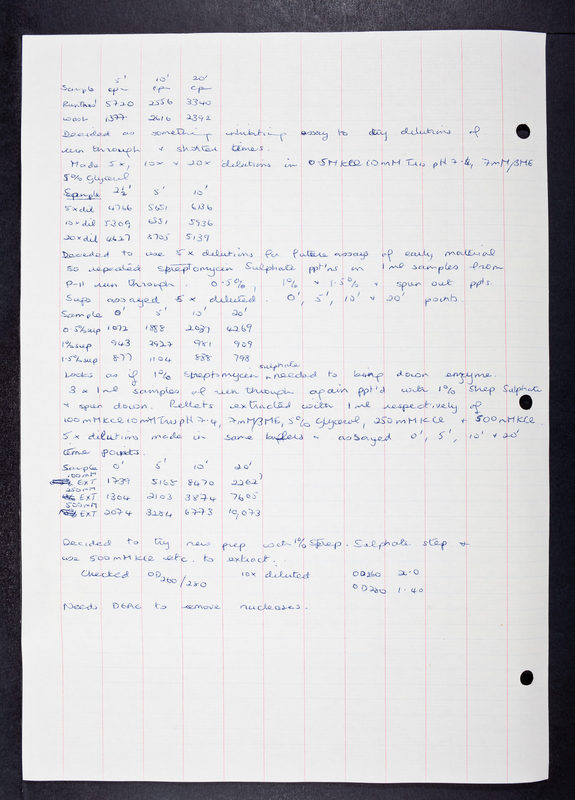 5' 10' 20'
Sample cpm cpm cpm
Runthro' 5720 2556 3340
Wash 1377 2616 2392
Decided as something inhibiting assay to try dilutions of
run through + shorter times.
Made 5x, 10x + 20x dilutions in 0.5M KCl 10mM Tris pH 7.4, 7mM βME
5% Glycerol
Sample 2½' 5' 10'
5xdil 4766 5651 6136
10xdil 5309 6551 5936
20xdil 4627 5705 5139
Decided to use 5x dilutions for future assays of early material
So repeated Streptomycin Sulphate ppt'ns on 1ml samples from
P-11 run through. 0.5%, 1% + 1.5% + spun out ppts.
Sups assayed 5x diluted. 0', 5', 10' + 20' points.
Sample 0' 5' 10' 20'
0.5%sup 1072 1888 2037 4269
1%sup 943 2927 981 909
1.5%sup 877 1104 888 798
Looks as if 1% Streptomycin sulphate needed to bring down enzyme.
3 x 1ml samples of run through again ppt'd with 1% Strep Sulphate
+ spun down. Pellets extracted with 1ml respectively of
100mM KCl 10mM Tris pH 7.4, 7mM βME, 5% Glycerol, 250mM KCl + 500mM KCl.
5x dilutions made in same buffers + assayed 0', 5', 10' + 20'
time points.
Sample 0' 5' 10' 20'
100mM EXT 1739 5168 8470 2262
250mM EXT 1304 2103 3874 7605
500mM EXT 2074 3284 6773 10,073
Decided to try new prep with 1% Strep. Sulphate step +
use 500mM KCl etc. to extract.
Checked OD260/280 10x diluted OD260 2.0
OD280 1.40
Needs DEAE to remove nucleases.